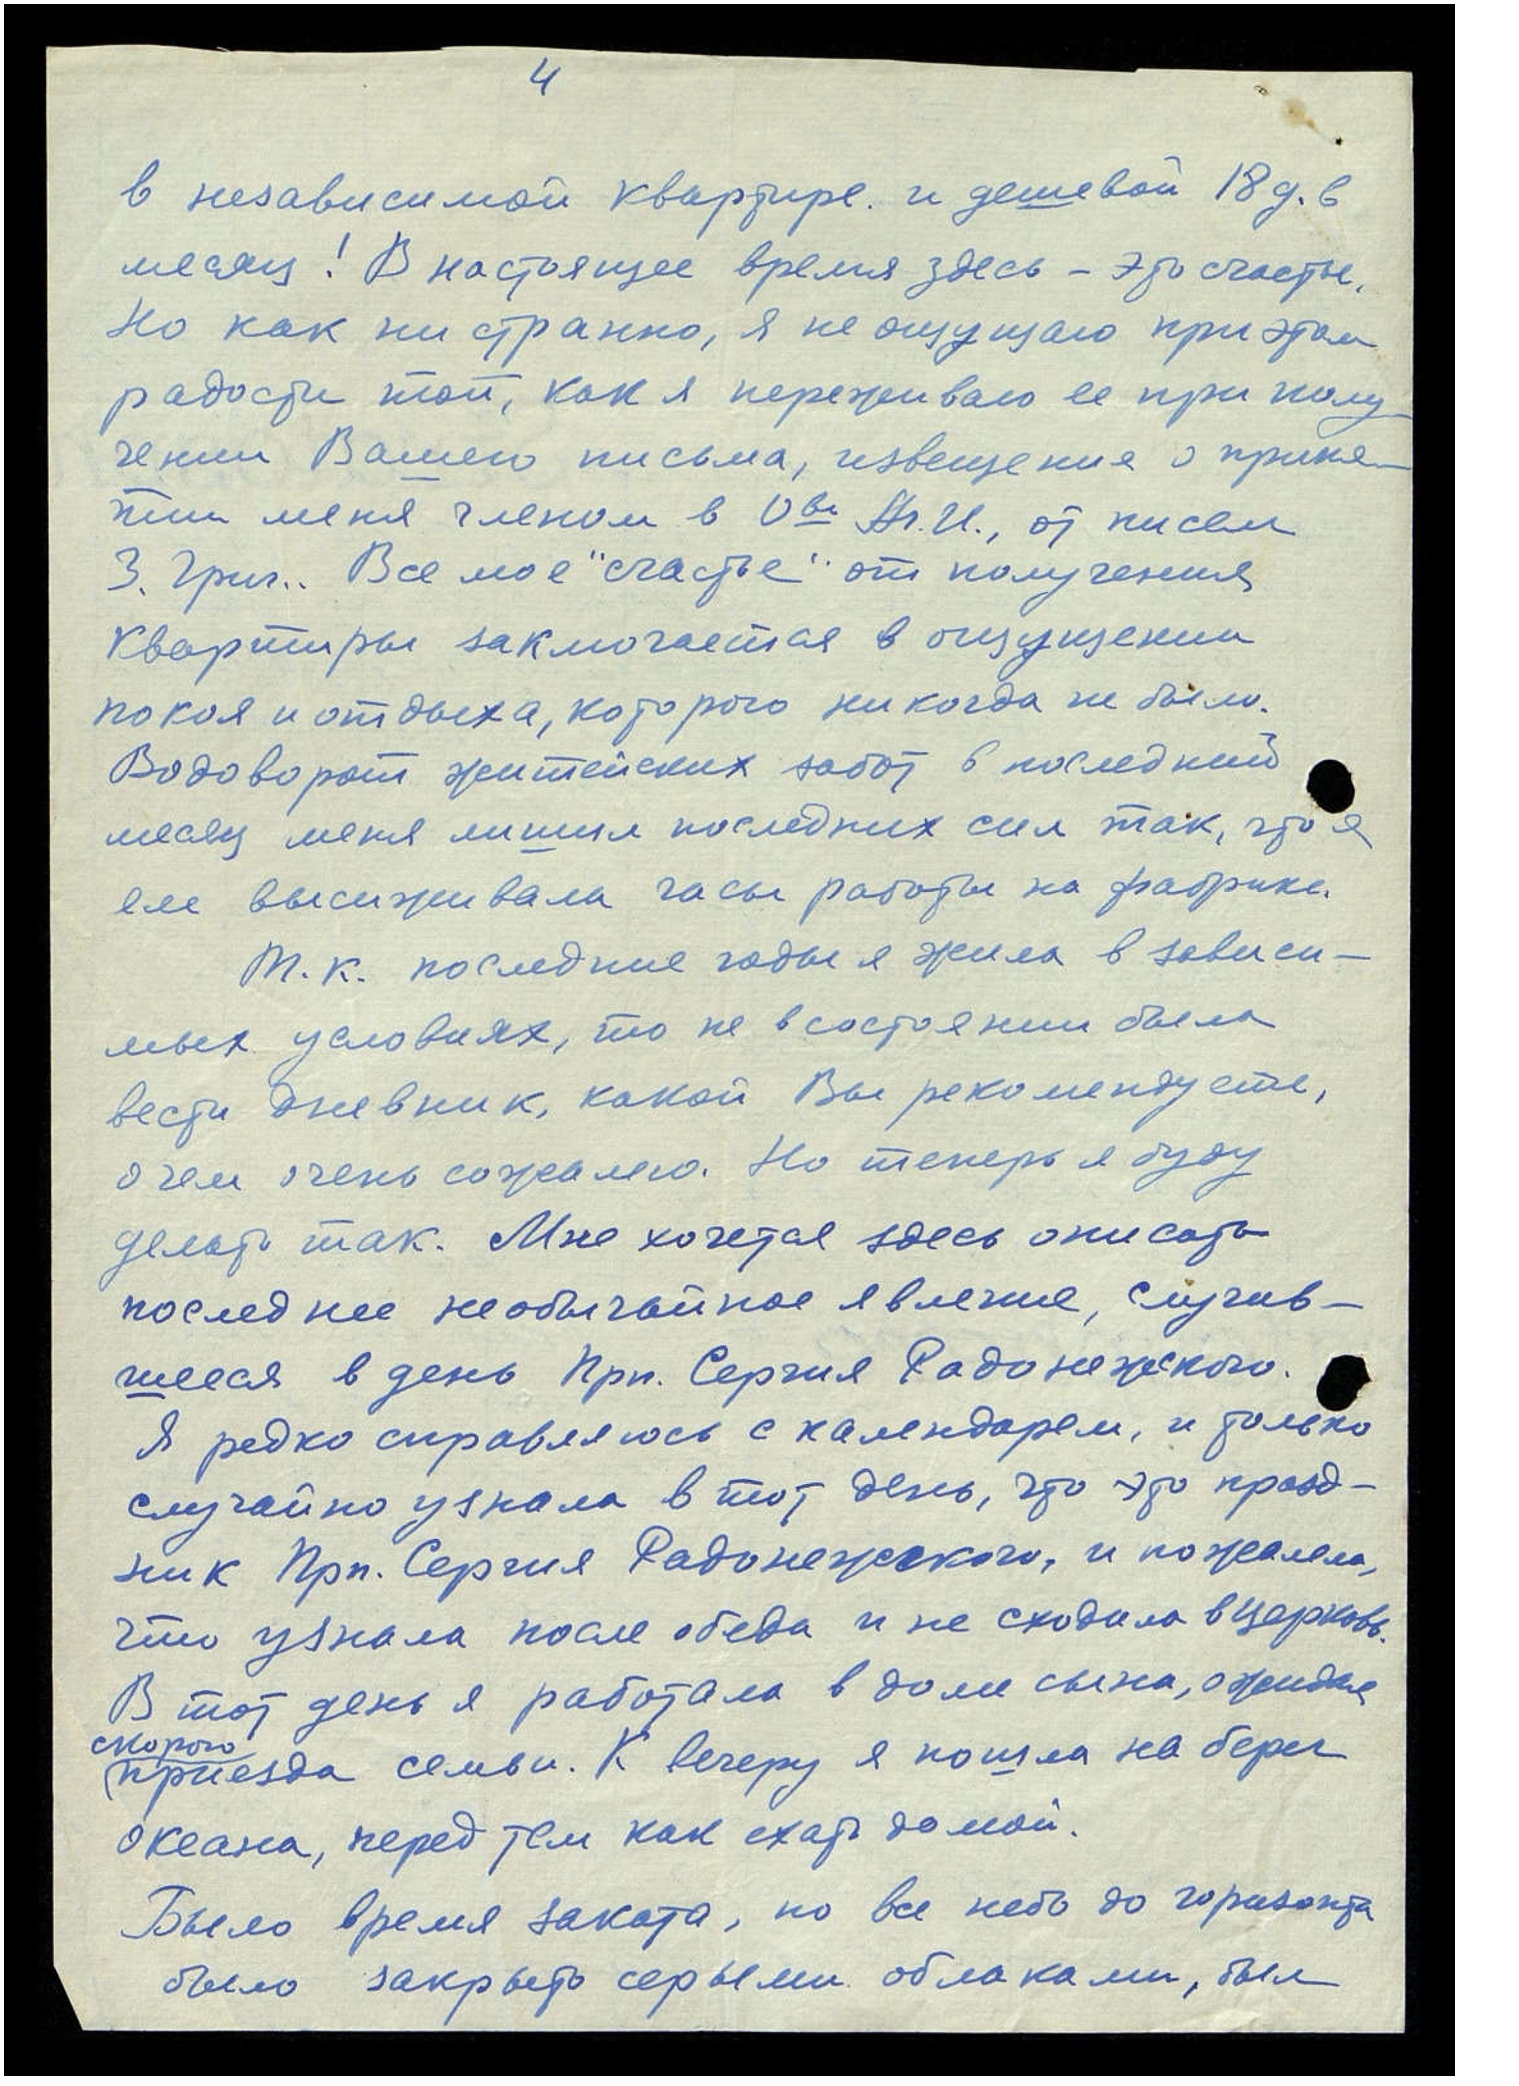 4
в независимой квартире. и дешевой 18 д. в
месяц! В настоящее время здесь – это счастье.
Но как ни странно, я не ощущаю при этом
радости той, как я переживаю ее при полу-
чении Вашего письма, извещения о приня-
тии меня членом в О-ви Аг. И., от писем
З. Григ.. Все мое "счастье" от получения
квартиры заключается в ощущении
покоя и отдыха, которого никогда не было.
Водоворот житейских забот в последний
месяц меня лишил последних сил так, что я
еле высиживала часы работы на фабрике.
Т. к. последние годы я жила в зависи-
мых условиях, то не в состоянии была
вести дневник, какой Вы рекомендуете,
о чем очень сожалею. Но теперь я буду
делать так. Мне хочется здесь описать
последнее необычайное явление, случив-
шееся в день Прп. Сергия Радонежского.
Я редко справляюсь с календарем, и только
случайно узнала в тот день, что это празд-
ник Прп. Сергия Радонежского, и пожалела,
что узнала после обеда и не сходила в церковь.
В тот день я работала в доме сына, ожидая
скорого
приезда семьи. К вечеру я пошла на берег
океана, перед тем как ехать домой.
Было время заката, но все небо до горизонта
было закрыто серыми облаками, был